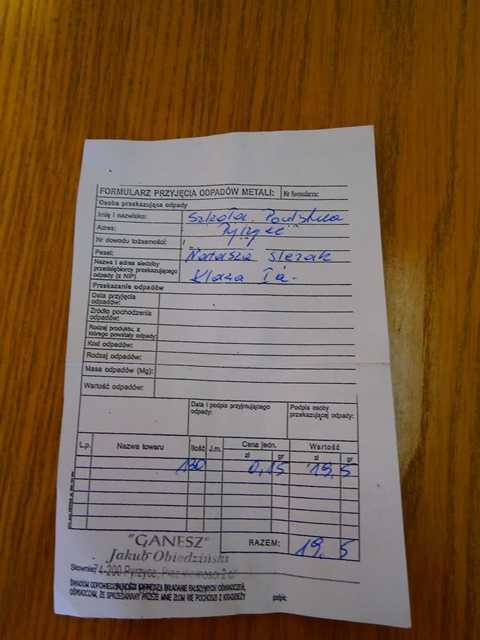 FORMULARZ PRZYJĘCIA ODPADÓW METALI: Nr formularza:
Osoba przekazująca odpady
Imię i nazwisko: Szkoła Podstwa
Adres: Pyrzyce
Nr dowodu tożsamości: /
Pesel: Natasza Slezak
Nazwa i adres siedziby
przedsiębiorcy przekazującego
odpady (z NIP) Klasa Ia-
Przekazanie odpadów
Data przyjęcia
odpadów:
Źródło pochodzenia
odpadów:
Rodzaj produktu, z
którego powstały odpady:
Kod odpadów:
Rodzaj odpadów:
Masa odpadów (Mg):
Wartość odpadów:
Data i podpis przyjmującego
odpady: Podpis osoby
przekazującej odpady:
L.p. Nazwa towaru Ilość J.m. Cena jedn. Wartość
zł gr zł gr
130 0,15 19,5
RAZEM: 19,5
"GANESZ"
Jakub Obiedziński
Słownie: 74-200 Pyrzyce,
ŚWIADOM ODPOWIEDZIALNOŚCI SKŁADANIE FAŁSZYWYCH OŚWIADCZEŃ,
OŚWIADCZAM, ŻE SPRZEDAWANY PRZEZE MNIE ZŁOM NIE POCHODZI Z KRADZIEŻY podpis